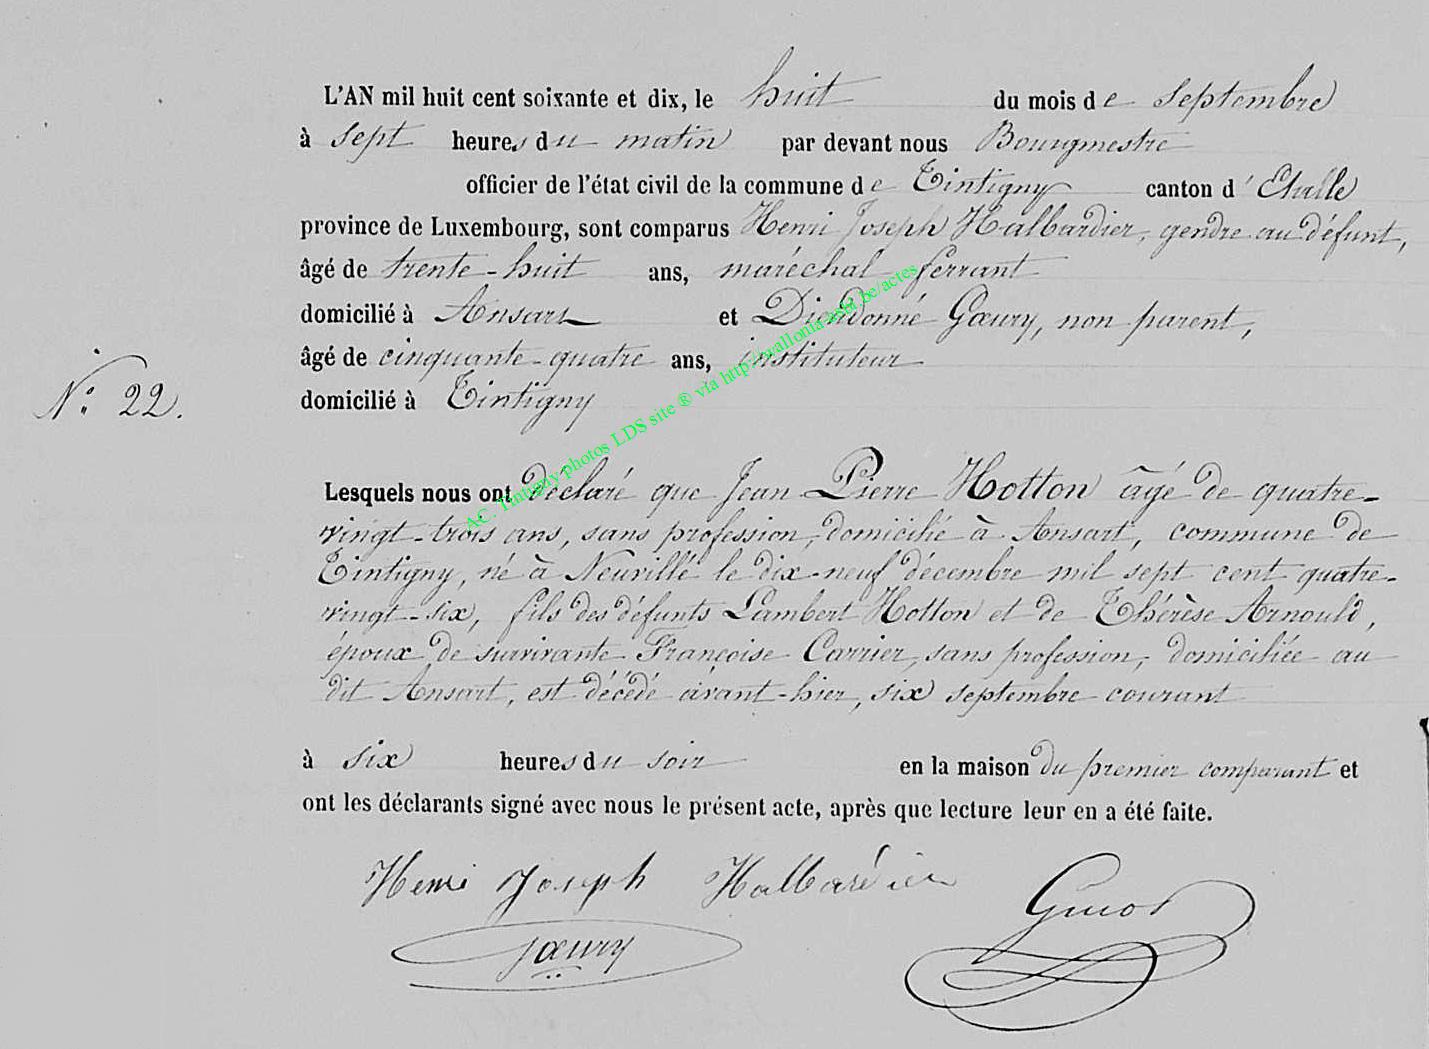 L'AN mil huit cent soixante et dix, le huit du mois de septembre
à sept heures du matin par devant nous Bourgmestre
officier de l'état civil de la commune de Tintigny canton d'Etalle
province de Luxembourg, sont comparus Henri Joseph Halbardier, gendre au défunt,
âgé de trente-huit ans, maréchal ferrant
domicilié à Ansart et Dieudonné Gœury, non parent,
âgé de cinquante-quatre ans, instituteur
N° 22.
domicilié à Tintigny
Lesquels nous ont déclaré que Jean Pierre Hotton âgé de quatre-
vingt-trois ans, sans profession, domicilié à Ansart, commune de
Tintigny, né à Neuvillé le dix-neuf décembre mil sept cent quatre-
vingt-six, fils des défunts Lambert Hotton et de Thérèse Arnould,
époux de survivante Françoise Carrier, sans profession, domiciliée au
dit Ansart, est décédé avant-hier, six septembre courant
à six heures du soir en la maison du premier comparant et
ont les déclarants signé avec nous le présent acte, après que lecture leur en a été faite.
Henri Joseph Halbardier
Gœury
AC. Tintigny photos LDS site ® via http://wallonia-asbl.be/actes